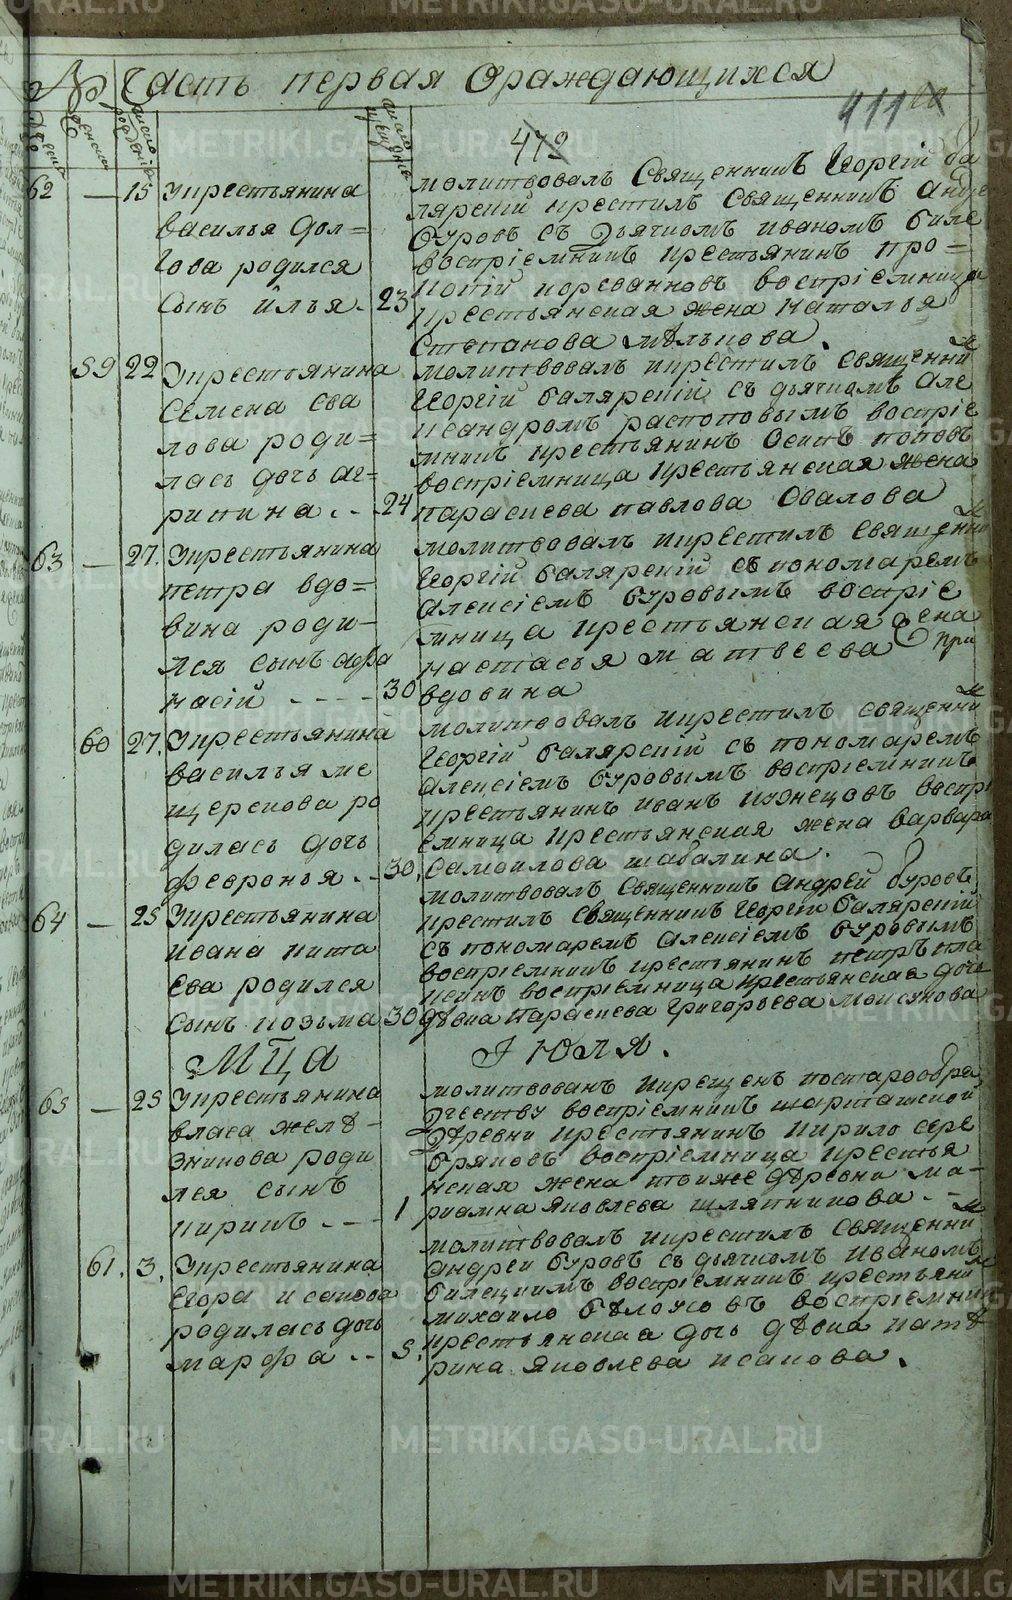 № Часть первая ораждающихся
411
472
62 — 15 Укрестьянина
василья дол=
гова родился
сынъ илья. 23
молитвовалъ Священникъ Георгій ба
лярскій крестилъ священникъ Андрей
буровъ съ дьячкомъ иваномъ биле
воспріемникъ крестьянинъ про=
копій воспріемница
крестьянская жена наталья
степанова мѣлькова.
59 22 Укрестьянина
семена ова
лова роди=
лась дочь аг=
рипина. .. 24
молитвовалъ икрестилъ священникъ
Георгій балярскій съ дьячкомъ але
ксандромъ распоповымъ воспріе
мникъ крестьянинъ осипъ поповъ
воспріемница крестьянская жена
параскева павлова Овалова
63 — 27. Укрестьянина
петра вдо=
вина роди-
лся сынъ афа
насій - - - - 30
молитвовалъ икрестилъ священникъ
Георгій балярскій съ пономаремъ
алексіемъ буровымъ воспріе
мница крестьянская жена
настасья матвеева
вдовина
60 27. Укрестьянина
василья ме
щерскова ро
дилась дочь
февронья. .. 30.
молитвовалъ икрестилъ священникъ
Георгій балярскій съ пономаремъ
алексіемъ буровымъ воспріемникъ
крестьянинъ иванъ кузнецовъ воспрі
емница крестьянская жена варвара
самоилова шабалина.
64 — 25 Укрестьянина
ивана кита
ева родился
сынъ козьма 30
молитвовалъ священникъ андрей буровъ
крестилъ священникъ Георгій балярскій
съ пономаремъ алексіемъ буровымъ
воспріемникъ крестьянинъ петръ
воспріемница крестьянская дочь
дѣвка параскева григорьева моисѣкова
Мца Іюля.
65 — 25 Укрестьянина
власа желѣ-
зникова роди
лся сынъ
кирикъ - - - 1
молитвованъ икрещенъ постарообря
дчеству воспріемникъ шарташской
деревни крестьянинъ кирило сере
бряковъ воспріемница крестья
нская жена тойже дѣревни ма-
риамна яковлева шляпникова. -
61. 3. Укрестьянина
егора исакова
родилась дочь
марфа .. 5.
молитвовалъ икрестилъ священникъ
андрей буровъ съ дьячкомъ иваномъ
билецкимъ воспріемникъ крестьянинъ
михаило бѣлоусовъ воспріемница
крестьянская дочь дѣвка катѣ
рина яковлева исакова.
METRIKI.GASO-URAL.RU